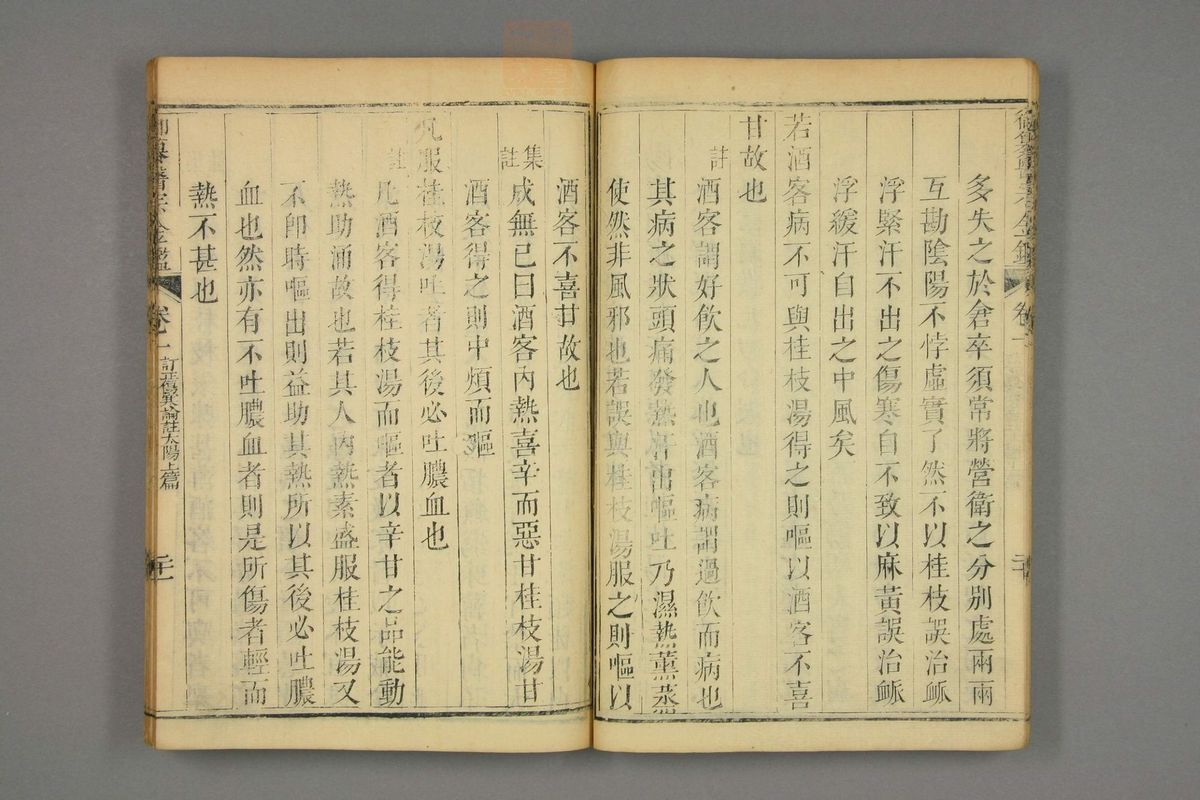 御纂醫宗金鑑 卷一 二十
多失之於倉卒須常將營衛之分別處兩兩
互勘陰陽不悖虛實了然不以桂枝誤治脈
浮緊汗不出之傷寒自不致以麻黃誤治脈
浮緩汗自出之中風矣
若酒客病不可與桂枝湯得之則嘔以酒客不喜
甘故也
註 酒客謂好飲之人也酒客病謂過飲而病也
其病之狀頭痛發熱汗出嘔吐乃濕熱薰蒸
使然非風邪也若誤與桂枝湯服之則嘔以
酒客不喜甘故也
集註 成無已曰酒客內熱喜辛而惡甘桂枝湯甘
酒客得之則中煩而嘔
凡服桂枝湯吐者其後必吐膿血也
註 凡酒客得桂枝湯而嘔者以辛甘之品能動
熱助涌故也若其人內熱素盛服桂枝湯又
不卽時嘔出則益助其熱所以其後必吐膿
血也然亦有不吐膿血者則是所傷者輕而
熱不甚也
御纂醫宗金鑑 卷一 訂正傷寒論註太陽上篇 二十一